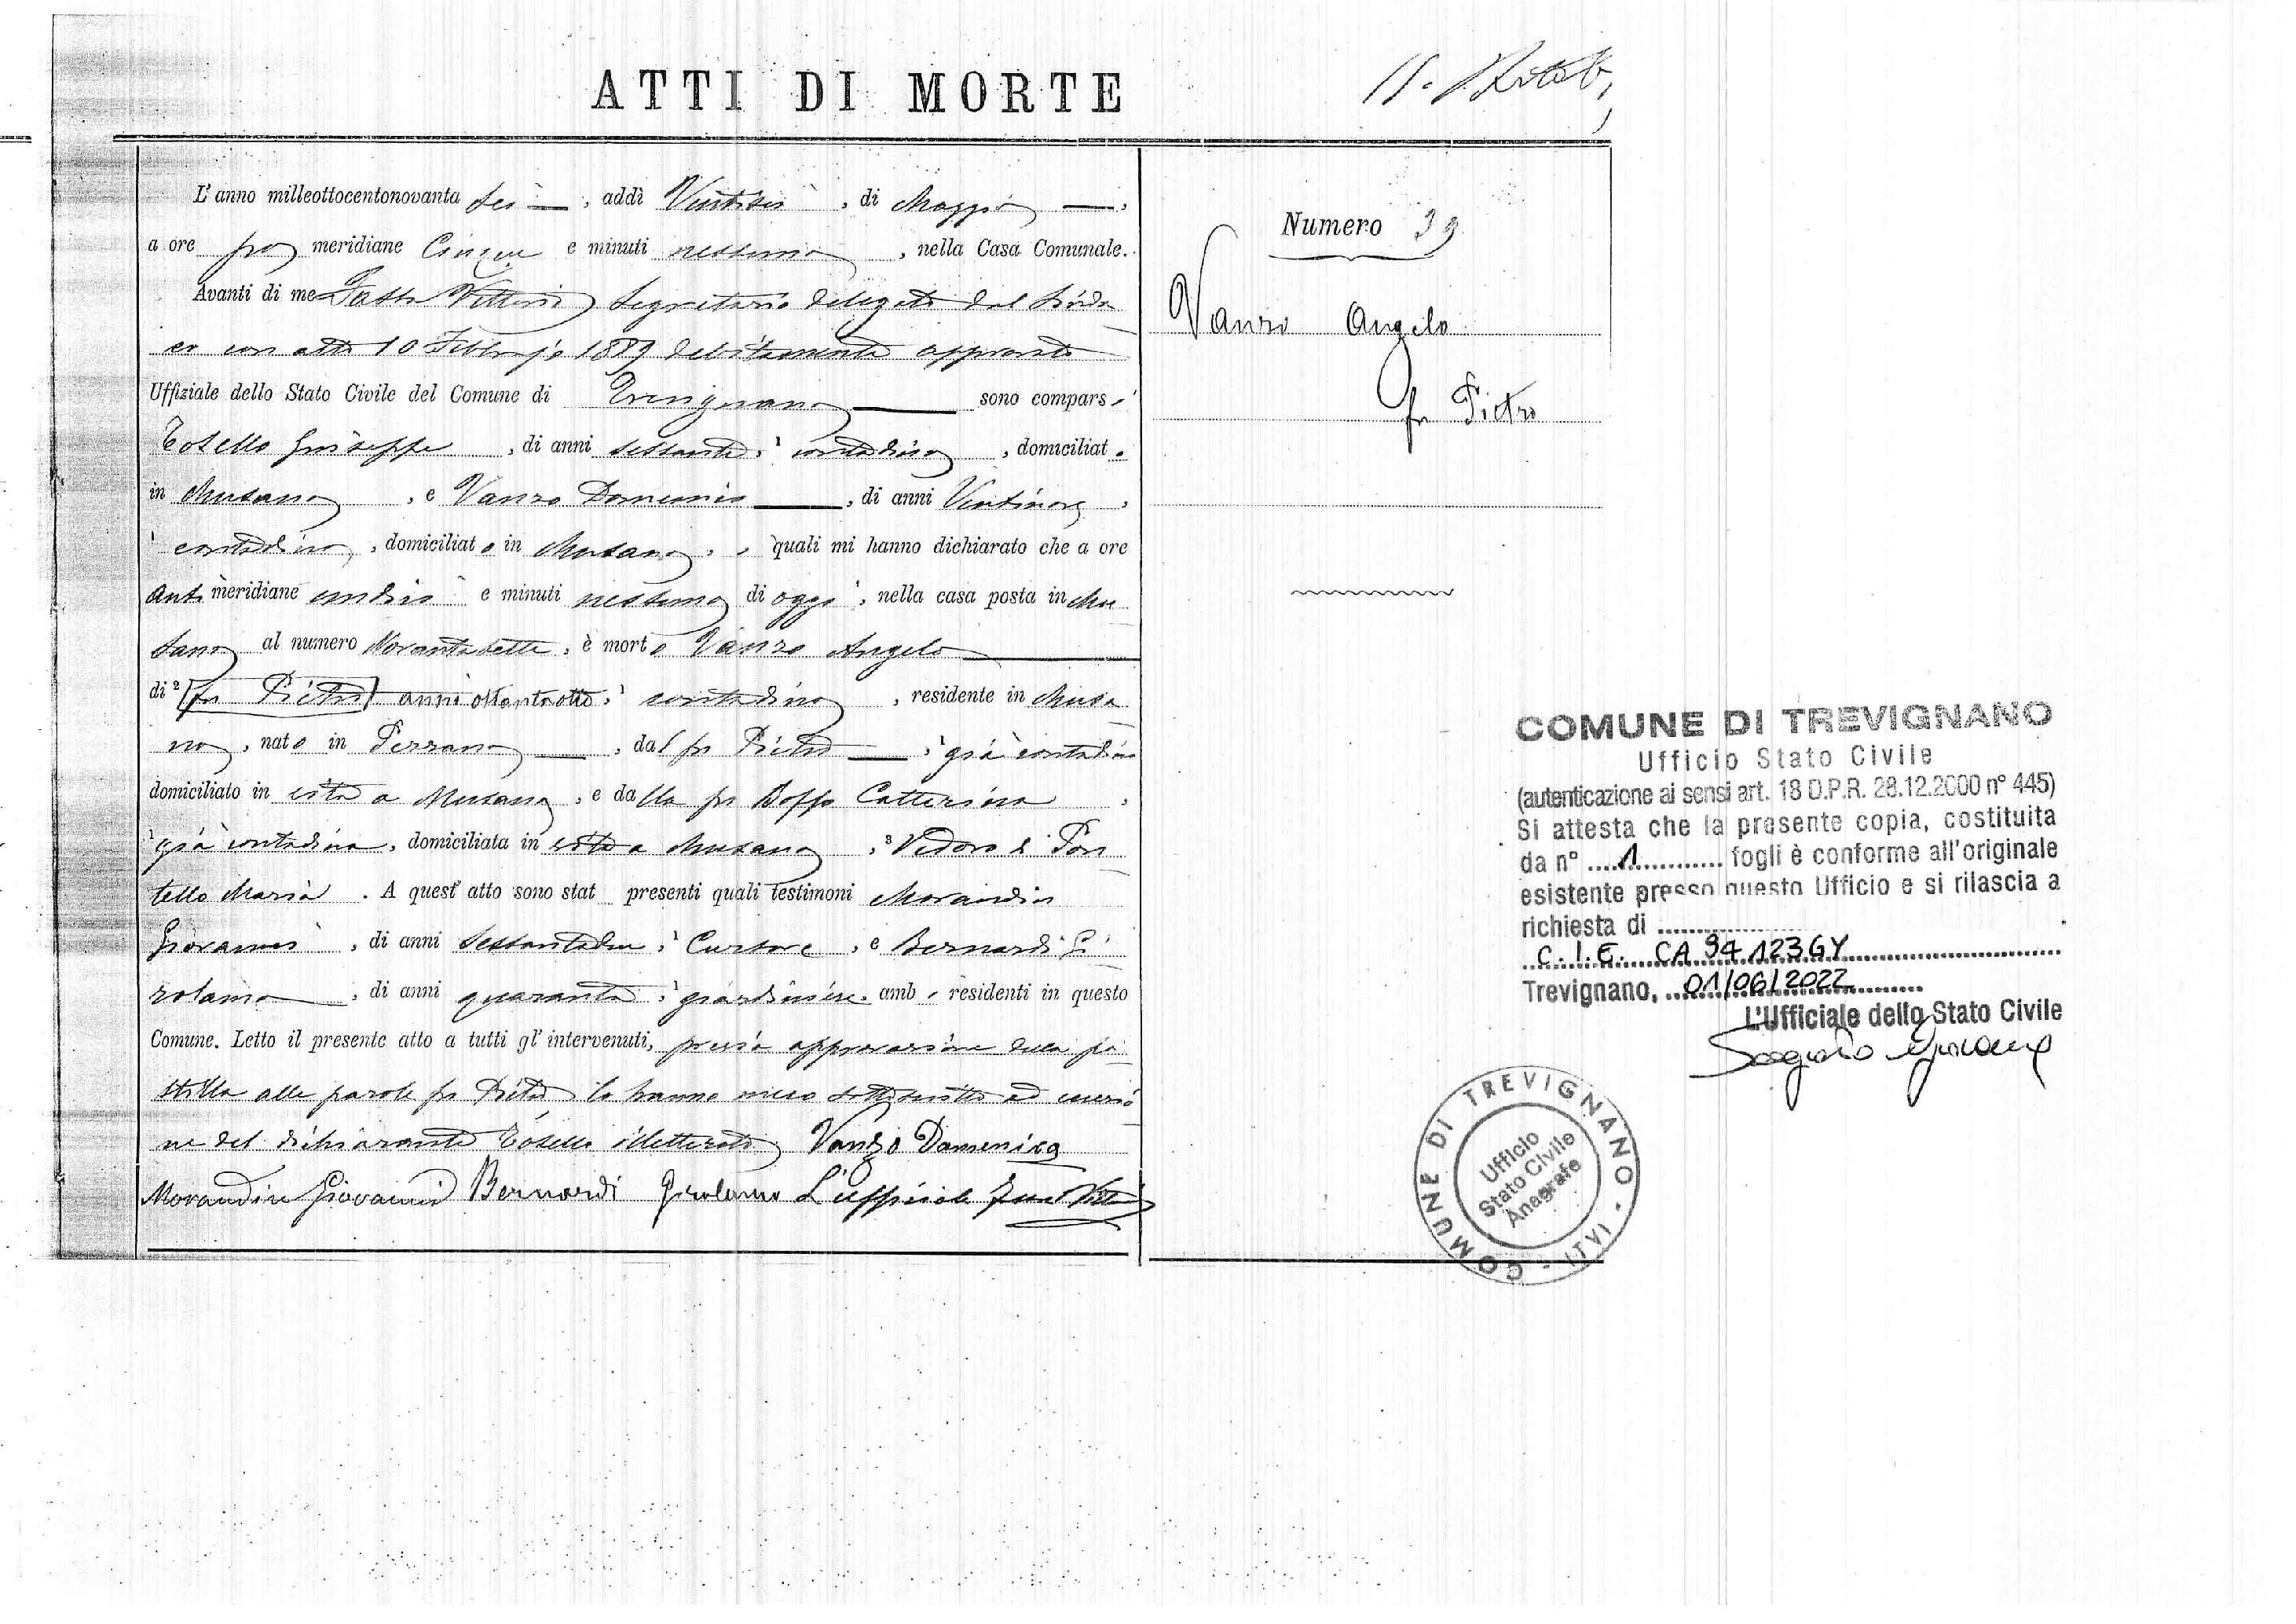 ATTI DI MORTE
L'anno milleottocentonovanta sei, addì Ventisei, di Maggio,
a ore po meridiane Cinque e minuti nessuno, nella Casa Comunale.
Avanti di me Vittorio Segretario delegato dal Sinda
co con atto 10 Febbrajo 1889 debitamente approvato
Uffiziale dello Stato Civile del Comune di Trevignano sono compars i
Tosello Giuseppe, di anni sessanta, ¹ contadino, domiciliat o
in Musano, e Vanzo Domenico, di anni Ventinove,
¹ contadino, domiciliat o in Musano, i quali mi hanno dichiarato che a ore
Anti meridiane undici e minuti nessuno di oggi, nella casa posta in Mu
sano al numero Novantasette, è mort o Vanzo Angelo
di ² (fu Pietro) anni ottantotto, ¹ contadino, residente in Musa
no, nato in Perzano, dal fu Pietro, ¹ già contadino
domiciliato in vita a Musano, e dalla fu Boffo Catterina,
¹ già contadina, domiciliata in vita a Musano, ³ Vedovo di Por
tello Maria. A quest' atto sono stat presenti quali testimoni Morandin
Giovanni, di anni sessantadue, ¹ Cursore, e Bernardi Gi
rolamo, di anni quaranta, ¹ giardiniere, amb i residenti in questo
Comune. Letto il presente atto a tutti gl' intervenuti, previa approvazione della po
stilla alle parole fu Pietro lo hanno meco sottoscritto ad eccezio
ne del dichiarante Tosello illetterato Vanzo Domenico
Morandin Giovanni Bernardi Girolamo L'ufficiale
Numero 39
Vanzo Angelo
fu Pietro
COMUNE DI TREVIGNANO
Ufficio Stato Civile
(autenticazione ai sensi art. 18 D.P.R. 28.12.2000 n° 445)
Si attesta che la presente copia, costituita
da n° 1 fogli è conforme all'originale
esistente presso questo Ufficio e si rilascia a
richiesta di
C.I.E. CA 94123GY
Trevignano, 01/06/2022
L'Ufficiale dello Stato Civile
COMUNE DI TREVIGNANO - (TV)
Ufficio
Stato Civile
Anagrafe